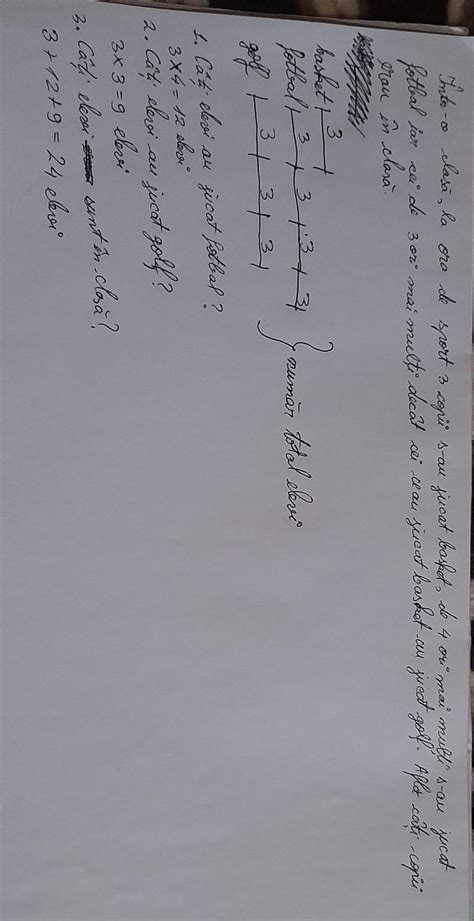 Într-o clasă, la ora de sport 3 copii s-au jucat basket, de 4 ori mai mulți s-au jucat
fotbal iar cei de 3 ori mai mulți decât cei ceau jucat basket au jucat golf. Aflat câți copii
erau în clasă.
basket 3
fotbal 3 3 3 3
golf 3 3 3
număr total elevi
1. Câți elevi au jucat fotbal?
3x4=12 elevi
2. Câți elevi au jucat golf?
3x3=9 elevi
3. Câți elevi sunt în clasă?
3+12+9=24 elevi